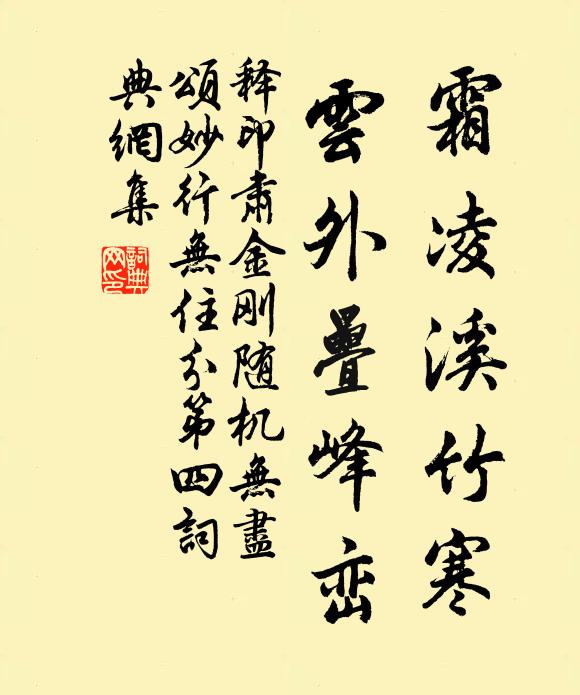 霜凌溪竹寒
雲外疊峰峦
释印肅金刚随机無盡
頌妙行無住分第四詞
典網集
詞典網印